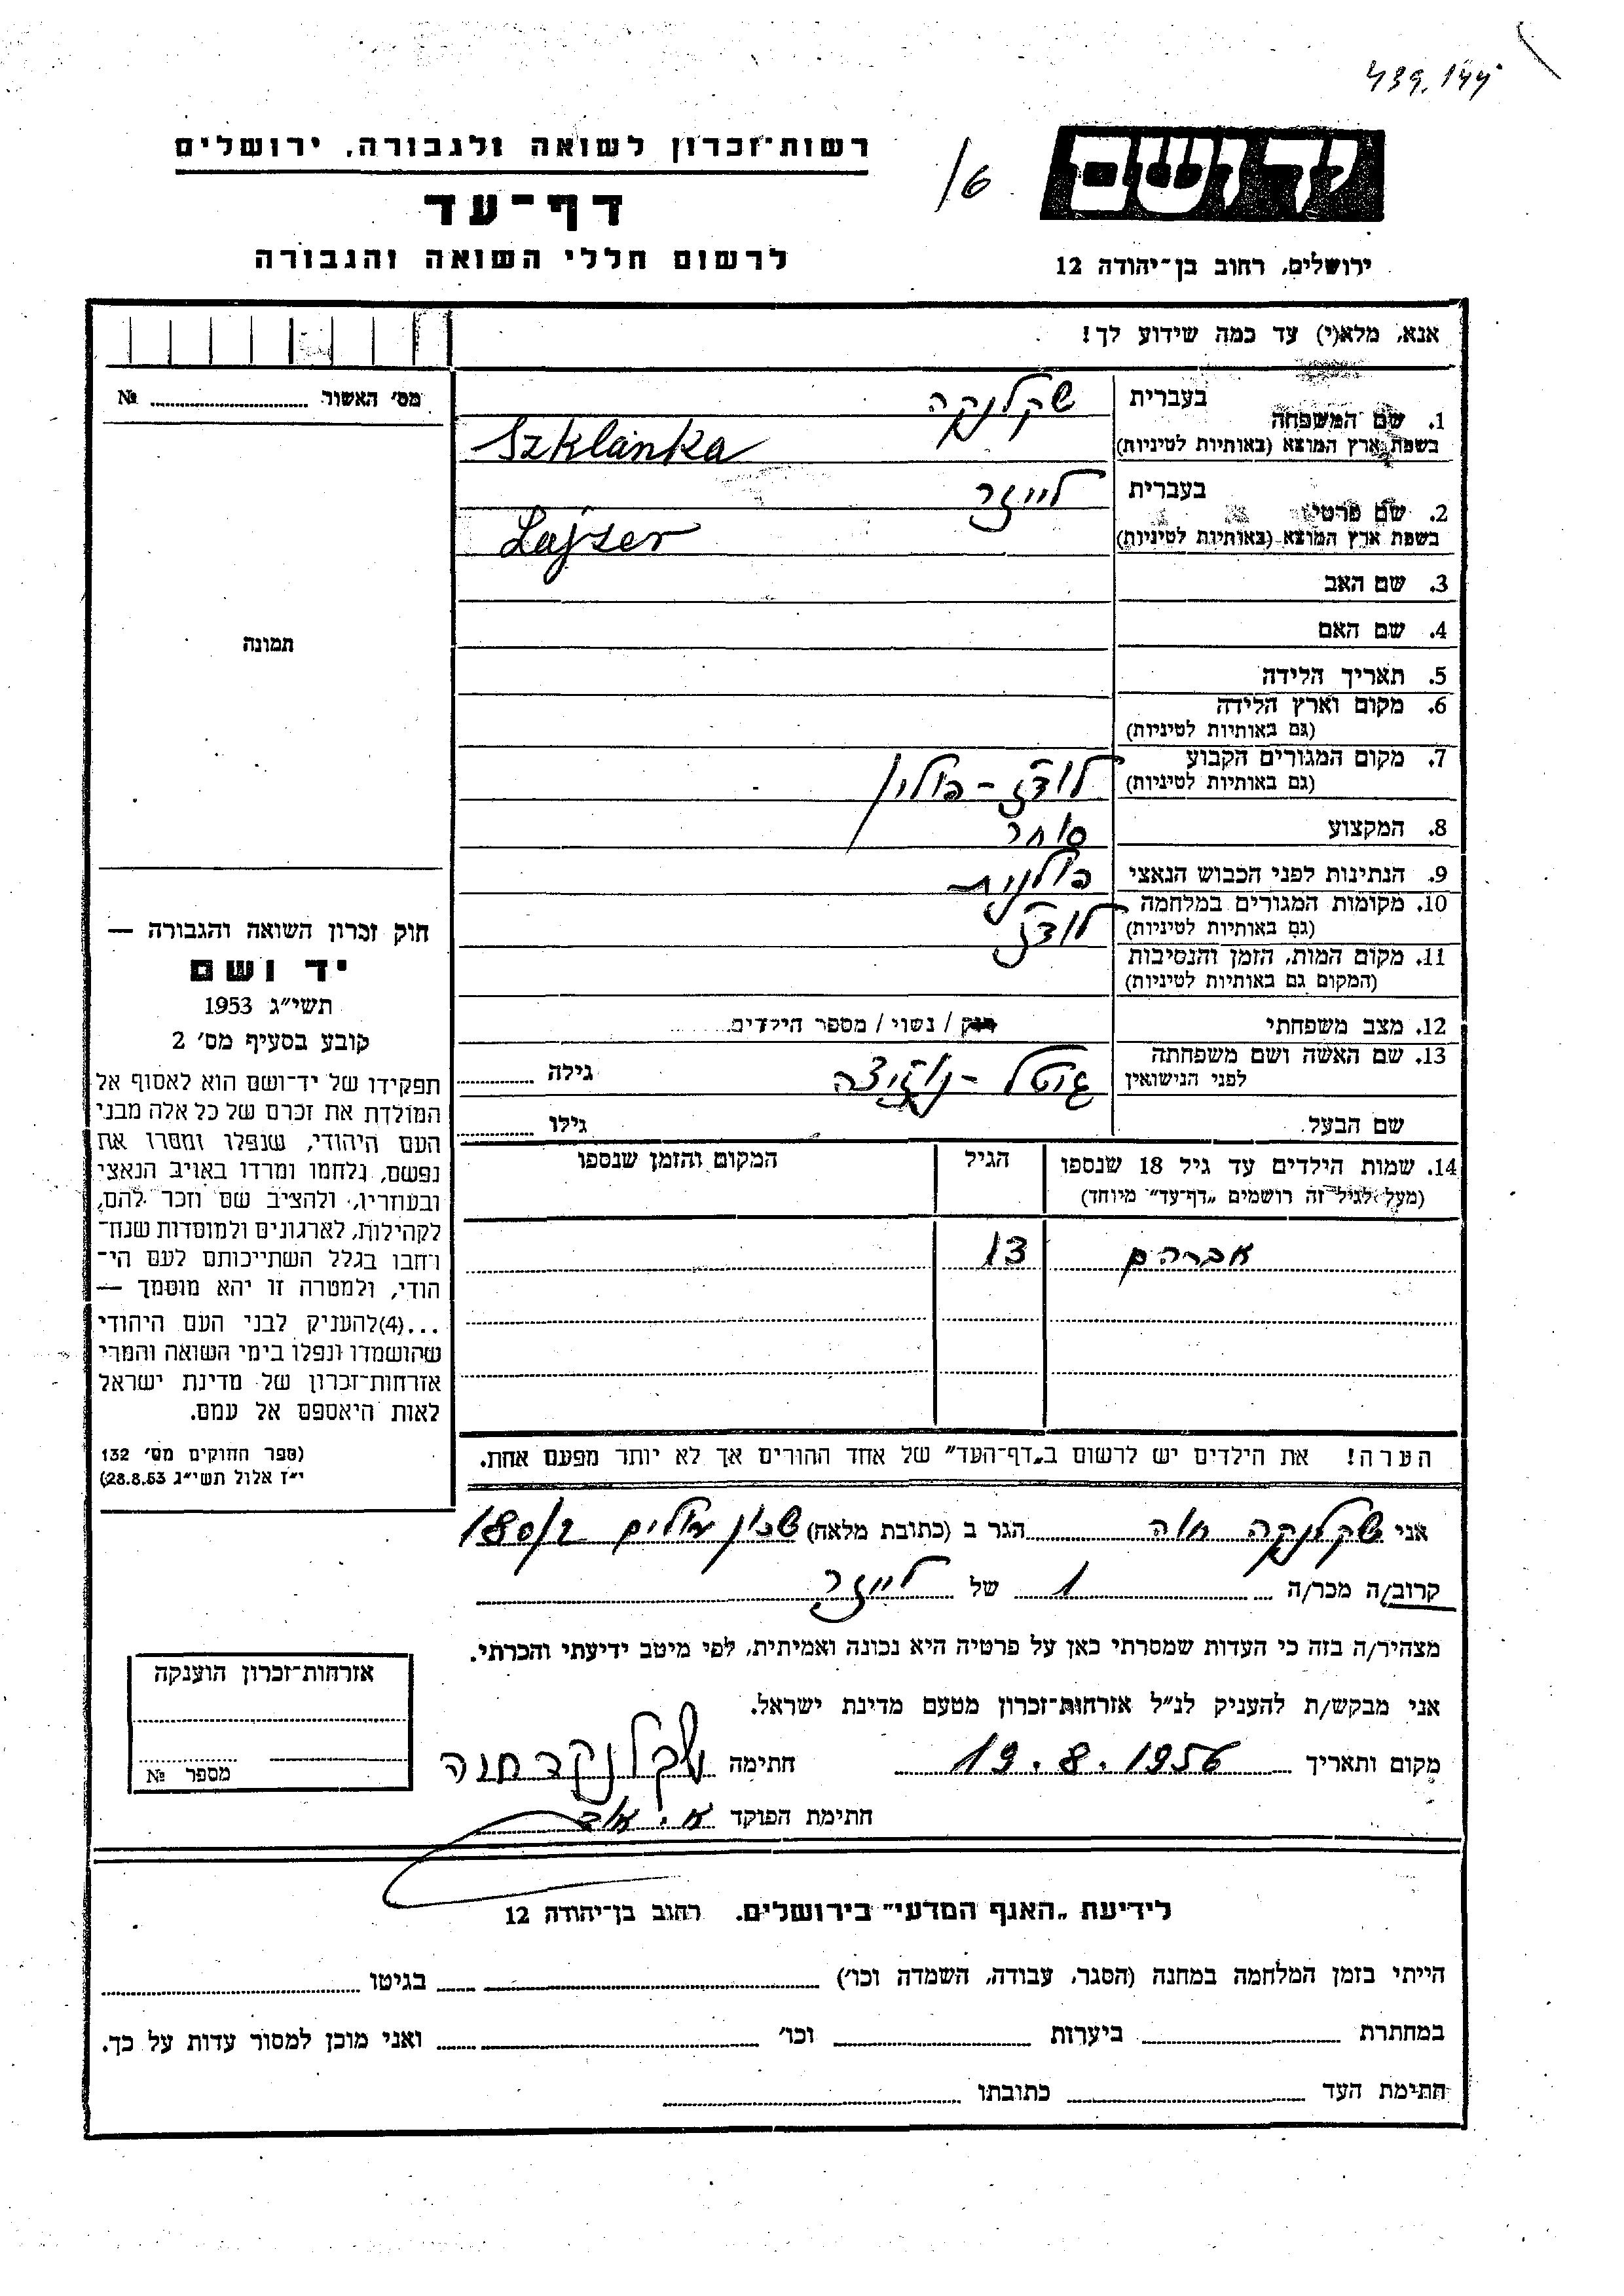 439.144
רשות־זכרון לשואה ולגבורה, ירושלים
דף־עד
לרשום חללי השואה והגבורה
16
יד ושם
ירושלים, רחוב בן־יהודה 12
אנא, מלא(י) עד כמה שידוע לך!
מס׳ האשור № 
1. שם המשפחה בעברית שקלנקה
בשפת ארץ המוצא (באותיות לטיניות) Szklanka
2. שם פרטי בעברית לייזר
בשפת ארץ המוצא (באותיות לטיניות) Lajzer
3. שם האב
4. שם האם
5. תאריך הלידה
6. מקום וארץ הלידה
(גם באותיות לטיניות)
7. מקום המגורים הקבוע לודז - פולין
(גם באותיות לטיניות)
8. המקצוע סוחר
9. הנתינות לפני הכבוש הנאצי פולנית
10. מקומות המגורים במלחמה לודז
(גם באותיות לטיניות)
11. מקום המות, הזמן והנסיבות
(המקום גם באותיות לטיניות)
12. מצב משפחתי רוק / נשוי / מספר הילדים
13. שם האשה ושם משפחתה גיטל - גילה
לפני הנישואין
שם הבעל גילו
14. שמות הילדים עד גיל 18 שנספו הגיל המקום והזמן שנספו
(מעל לגיל זה רושמים „דף־עד״ מיוחד)
אברהם 13
הערה! את הילדים יש לרשום ב„דף־העד״ של אחד ההורים אך לא יותר מפעם אחת.
תמונה
חוק זכרון השואה והגבורה —
יד ושם
תשי״ג 1953
קובע בסעיף מס׳ 2
תפקידו של יד־ושם הוא לאסוף אל
המולדת את זכרם של כל אלה מבני
העם היהודי, שנפלו ומסרו את
נפשם, נלחמו ומרדו באויב הנאצי
ובעוזריו, ולהציב שם וזכר להם,
לקהילות, לארגונים ולמוסדות שנח־
רחבו בגלל השתייכותם לעם הי־
הודי, ולמטרה זו יהא מוסמך —
...(4) להעניק לבני העם היהודי
שהושמדו ונפלו בימי השואה והמרי
אזרחות־זכרון של מדינת ישראל
לאות היאספם אל עמם.
(ספר החוקים מס׳ 132
י״ז אלול תשי״ג 28.8.53)
אני שקלנקה חוה הגר ב (כתובת מלאה) שכון עולים 180/2
קרוב/ה מכר/ה של לייזר
מצהיר/ה בזה כי העדות שמסרתי כאן על פרטיה היא נכונה ואמיתית, לפי מיטב ידיעתי והכרתי.
אני מבקש/ת להעניק לנ״ל אזרחות־זכרון מטעם מדינת ישראל.
מקום ותאריך 19.8.1956 חתימה שקלנקה חוה
חתימת הפוקד
אזרחות־זכרון הוענקה
מספר №
לידיעת „האגף המדעי״ בירושלים, רחוב בן־יהודה 12
הייתי בזמן המלחמה במחנה (הסגר, עבודה, השמדה וכו׳) בגיטו
במחתרת ביערות וכו׳ ואני מוכן למסור עדות על כך.
חתימת העד כתובתו